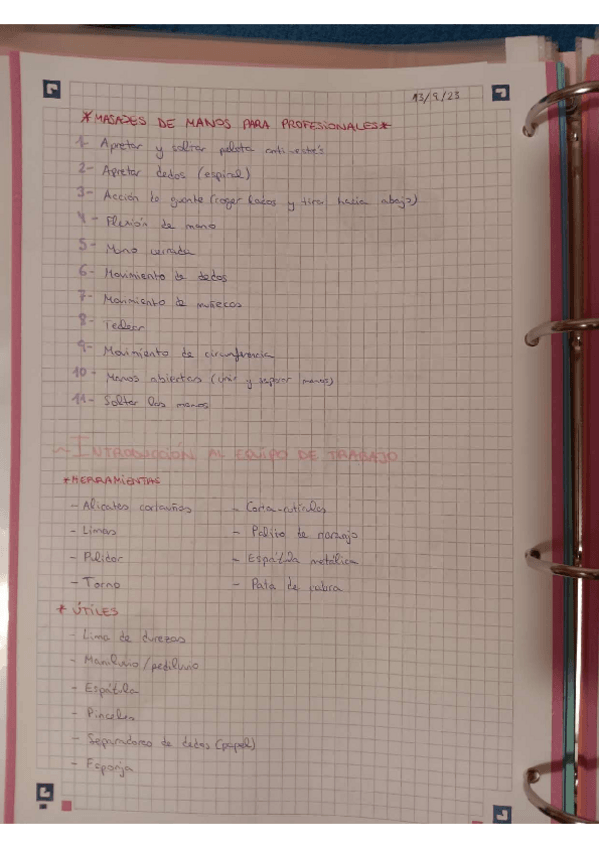 13/9/23
*MASAJES DE MANOS PARA PROFESIONALES*
1- Apretar y soltar pelota anti-estrés
2- Apretar dedos (espiral)
3- Acción de guante (coger hacia y tirar hacia abajo)
4- Flexión de mano
5- Mano cerrada
6- Movimiento de dedos
7- Movimiento de muñecas
8- Teclear
9- Movimiento de circunferencia
10- Manos abiertas (unir y separar manos)
11- Soltar las manos
INTRODUCCIÓN AL EQUIPO DE TRABAJO
*HERRAMIENTAS
- Alicates cortauños - Corta-cutículas
- Limas - Palito de naranjo
- Pulidor - Espátula metálica
- Torno - Pata de cabra
* ÚTILES
- Lima de durezas
- Maniluvio/pediluvio
- Espátula
- Pinceles
- Separadores de dedos (papel)
- Esponja